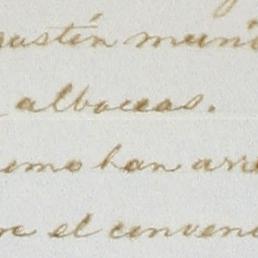 gustín muni
albaceas.
emo han arre
re el conveni